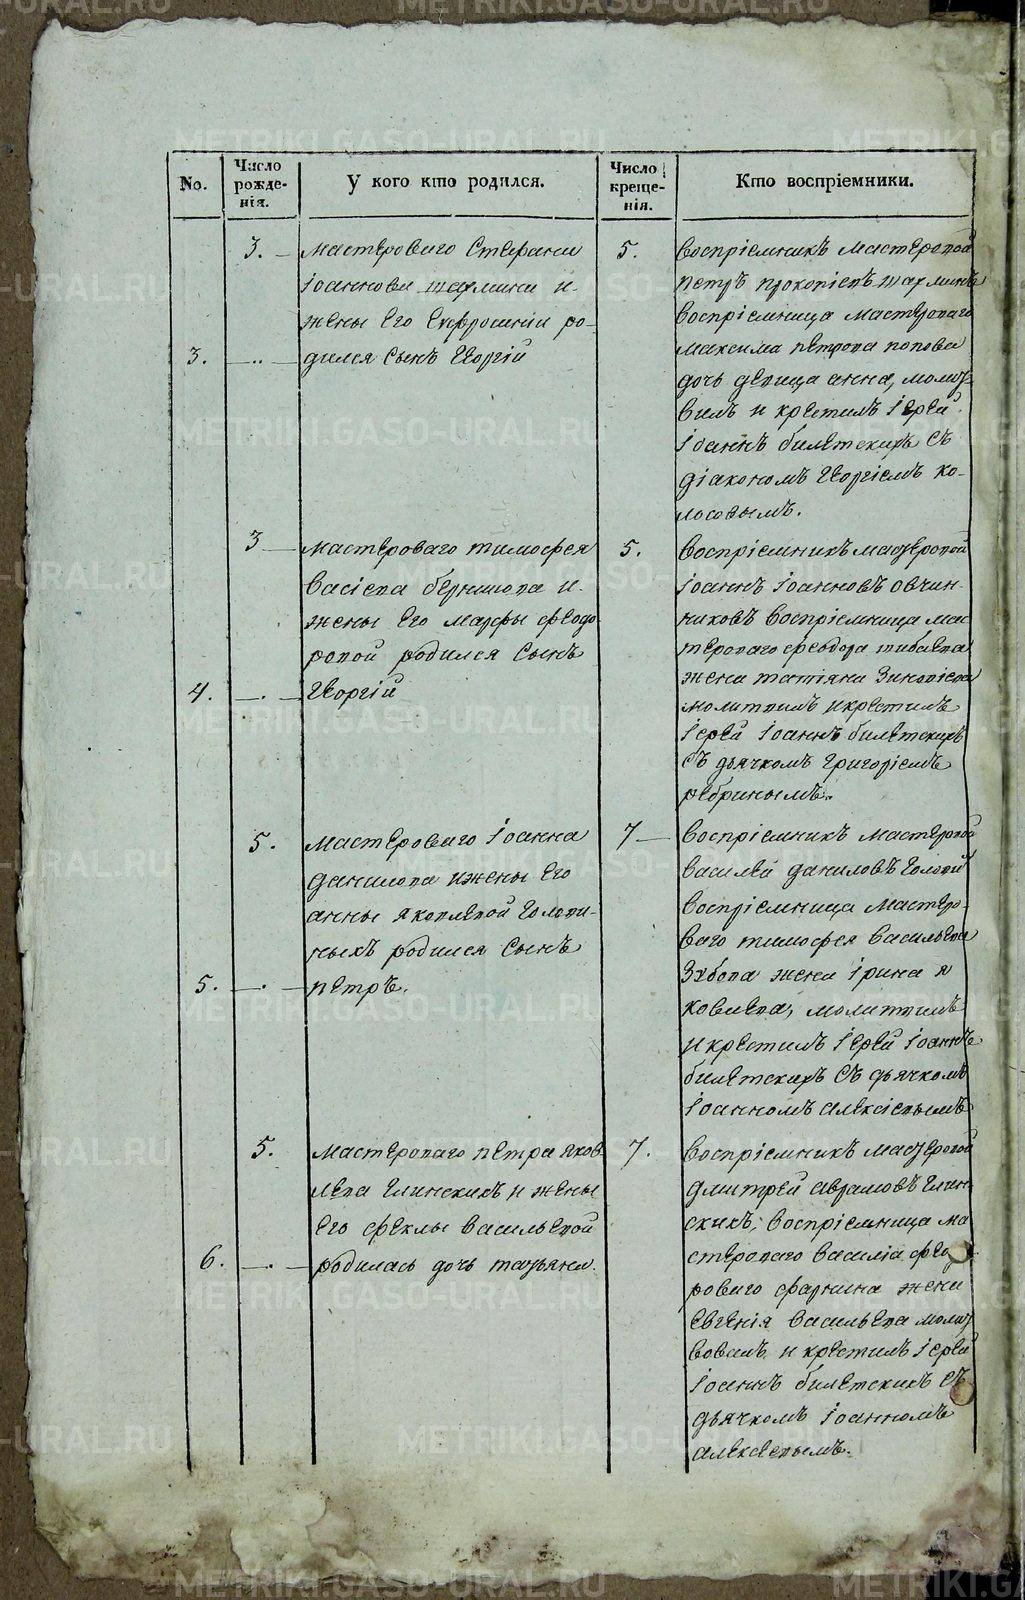 No.
Число рожде-нія.
У кого кто родился.
Число креще-нія.
Кто воспріемники.
3.
3.
мастероваго Стефана
Іоаннова
жены его Евфросиніи ро-
дился сынъ Георгій
5.
воспріемникъ мастеровой
петръ прокопіевъ
воспріемница мастероваго
максима петрова попова
дочь девица анна, молит-
вилъ и крестилъ Іерей
Іоаннъ билетскихъ съ
діакономъ Георгіемъ ко-
лосовымъ.
4.
3
мастероваго тимофея
и
жены его марфы феодо
ровой родился сынъ
Георгій
5.
воспріемникъ мастеровой
Іоаннъ Іоанновъ овчин-
никовъ воспріемница мас
тероваго феодора
жена татіана Зиновіева
молитвилъ и крестилъ
Іерей Іоаннъ билетскихъ
съ дьячкомъ григоріемъ
ребринымъ.
5.
5.
мастероваго Іоанна
данилова и жены его
анны яковлевой Голови-
ныхъ родился сынъ
петръ.
7
воспріемникъ мастеровой
василей даниловъ
воспріемница мастеро-
ваго тимофея васильева
Зубова жена Ірина я
ковлева, молитвилъ
и крестилъ Іерей Іоаннъ
билетскихъ съ дьячкомъ
Іоанномъ алексіевымъ
6.
5.
мастероваго петра яков
лева Глинскихъ и жены
его феклы васильевой
родилась дочь татьяна.
7.
воспріемникъ мастеровой
дмитрей аврамовъ Глин
скихъ, воспріемница ма
стероваго василіа
жена
евгенія васильева молит
вовалъ и крестилъ Іерей
Іоаннъ билетскихъ съ
дьячкомъ Іоанномъ
алексеевымъ.
METRIKI.GASO-URAL.RU